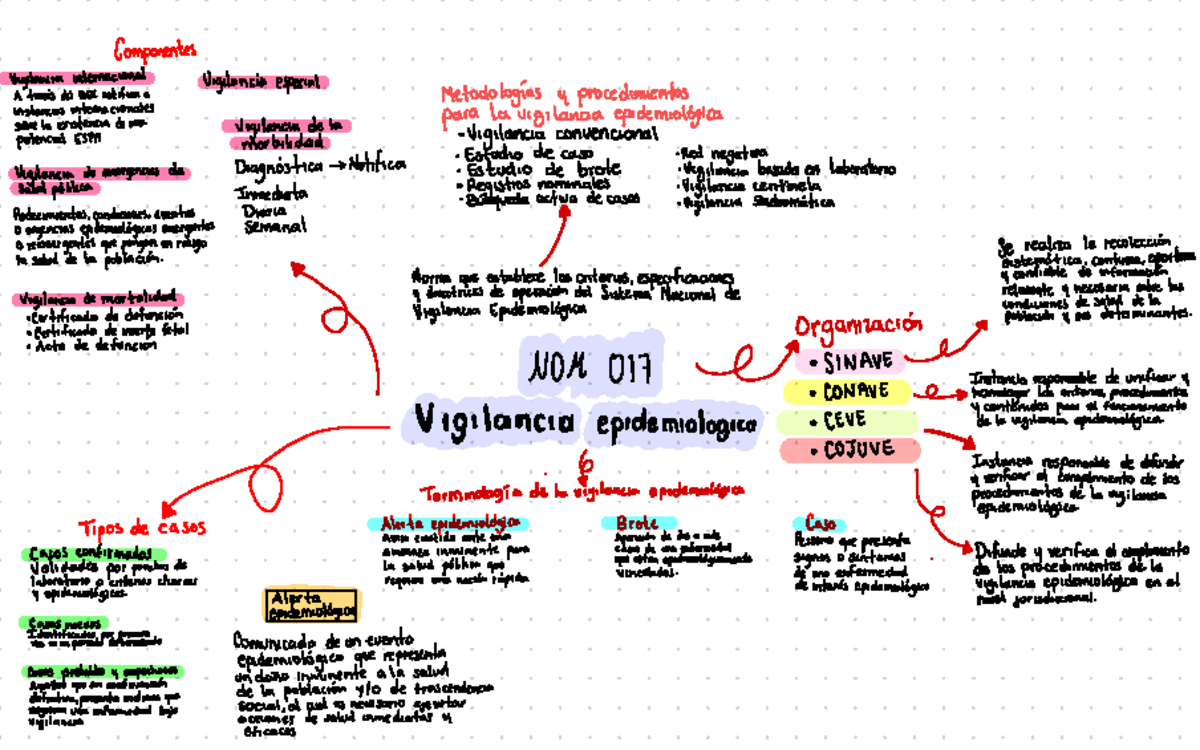 Componentes
Vigilancia internacional
A través del
instancias internacionales
sobre la existencia de
potencial ESPII
Vigilancia de emergencias de
salud pública
Padecimientos, condiciones, eventos
o urgencias epidemiológicas emergentes
o reemergentes que pongan en riesgo
la salud de la población.
Vigilancia de mortalidad
•Certificado de defunción
•Certificado de muerte fetal
• Acta de defunción
Vigilancia especial
Vigilancia de la
morbilidad
Diagnóstica → Notifica
Inmediata
Diaria
Semanal
Metodologías y procedimientos
para la vigilancia epidemiológica
•Vigilancia convencional
• Estudio de caso
• Estudio de brote
• Registros nominales
•Búsqueda activa de casos
•Red negativa
•Vigilancia basada en laboratorio
•Vigilancia centinela
•Vigilancia Sindromática
Norma que establece los criterios, especificaciones
y directrices de operación del Sistema Nacional de
Vigilancia Epidemiológica
NOM 017
Vigilancia epidemiologica
Organización
• SINAVE
• CONAVE
• CEVE
• COJUVE
Se realiza la recolección
sistemática, continua, oportuna
y confiable de información
relevante y necesaria sobre las
condiciones de salud de la
población y sus determinantes.
Instancia responsable de unificar y
homologar los criterios, procedimientos
y contenidos para el funcionamiento
de la vigilancia epidemiológica.
Instancia responsable de difundir
y verificar el cumplimiento de los
procedimientos de la vigilancia
epidemiológica.
Difunde y verifica el cumplimiento
de los procedimientos de la
vigilancia epidemiológica en el
nivel jurisdiccional.
Terminología de la vigilancia epidemiológica
Alerta epidemiológica
Aviso emitido ante una
amenaza inminente para
la salud pública que
requiere una acción rápida
Brote
Aparición de dos o más
casos de una enfermedad
que están epidemiológicamente
vinculados.
Caso
Persona que presenta
signos o síntomas
de una enfermedad
de interés epidemiológico
Tipos de casos
Casos confirmados
Validados por pruebas de
laboratorio o criterios clínicos
y epidemiológicos.
Casos nuevos
Identificados por primera
vez en un periodo determinado
Casos probables y sospechosos
Aquellos que sin confirmación
definitiva, presenta indicios que
sugieren una enfermedad bajo
vigilancia
Alerta
epidemiológica
Comunicado de un evento
epidemiológico que representa
un daño inminente a la salud
de la población y/o de trascendencia
social, al cual es necesario ejecutar
acciones de salud inmediatas y
eficaces